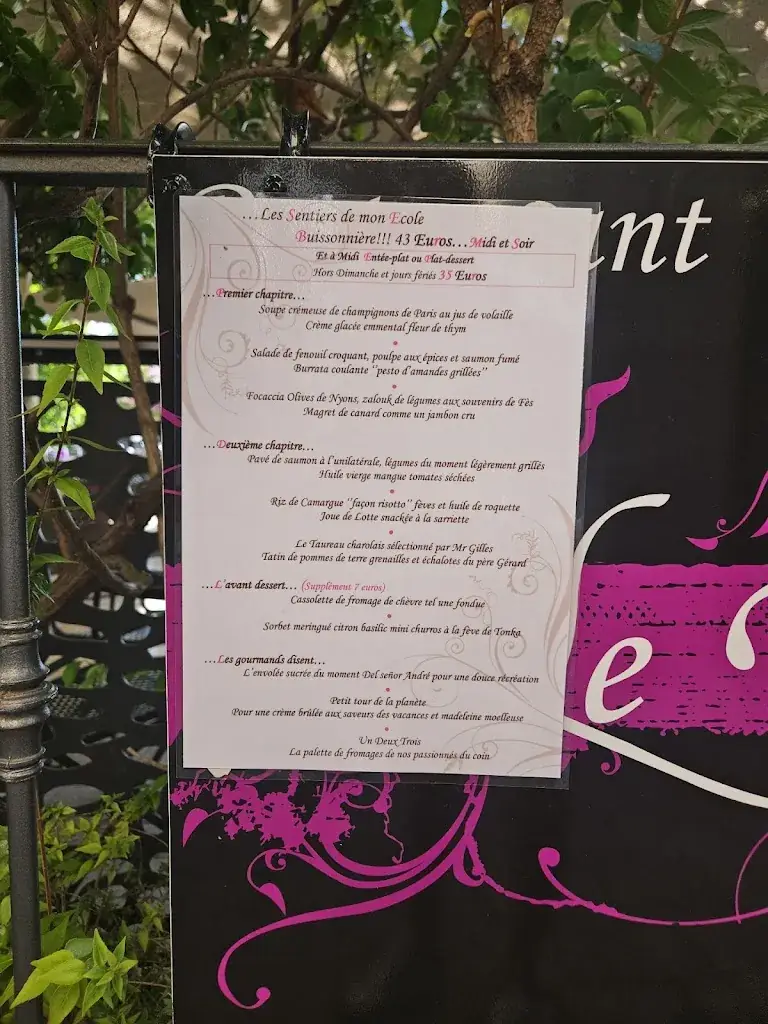 ...Les Sentiers de mon Ecole
Buissonnière!!! 43 Euros...Midi et Soir
Et à Midi Entée-plat ou Plat-dessert
Hors Dimanche et jours fériés 35 Euros
...Premier chapitre...
Soupe crémeuse de champignons de Paris au jus de volaille
Crème glacée emmental fleur de thym
Salade de fenouil croquant, poulpe aux épices et saumon fumé
Burrata coulante ''pesto d'amandes grillées''
Focaccia Olives de Nyons, zalouk de légumes aux souvenirs de Fès
Magret de canard comme un jambon cru
...Deuxième chapitre...
Pavé de saumon à l'unilatérale, légumes du moment légèrement grillés
Huile vierge mangue tomates séchées
Riz de Camargue ''façon risotto'' fèves et huile de roquette
Joue de Lotte snackée à la sarriette
Le Taureau charolais sélectionné par Mr Gilles
Tatin de pommes de terre grenailles et échalotes du père Gérard
...L'avant dessert... (Supplément 7 euros)
Cassolette de fromage de chèvre tel une fondue
Sorbet meringué citron basilic mini churros à la fève de Tonka
...Les gourmands disent...
L'envolée sucrée du moment Del señor André pour une douce récréation
Petit tour de la planète
Pour une crème brûlée aux saveurs des vacances et madeleine moelleuse
Un Deux Trois
La palette de fromages de nos passionnés du coin
ant
Le